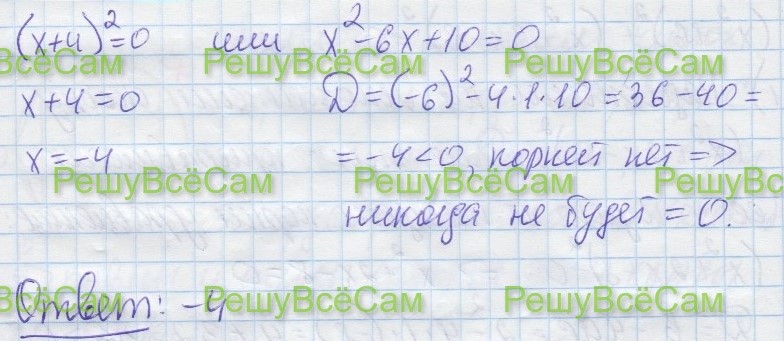 (x+4)²=0 или x²-6x+10=0
ВсёСам РешуВсёСам РешуВсёСам
x+4=0 D=(-6)²-4·1·10=36-40=
x=-4 =-4<0, корней нет =>
РешуВсёСам РешуВсёСам РешуВсёСам
никогда не будет =0.
Ответ: -4
ВсёСам РешуВсёСам РешуВсёСам